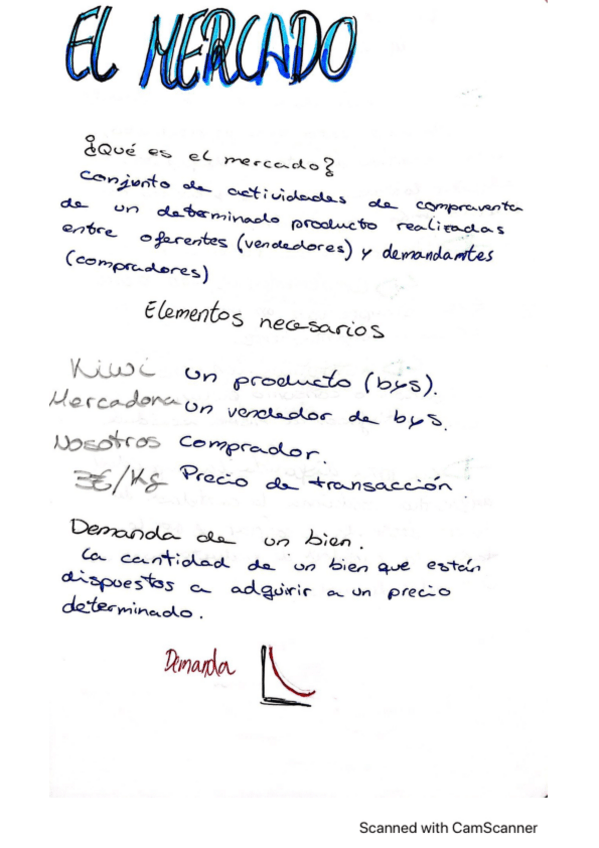 EL MERCADO
¿Qué es el mercado?
Conjunto de actividades de compraventa
de un determinado producto realizadas
entre oferentes (vendedores) y demandantes
(compradores)
Elementos necesarios
Kiwi un producto (bys).
Mercadona un vendedor de bys.
Nosotros comprador.
3€/Kg Precio de transacción.
Demanda de un bien.
La cantidad de un bien que están
dispuestos a adquirir a un precio
determinado.
Demanda
Scanned with CamScanner